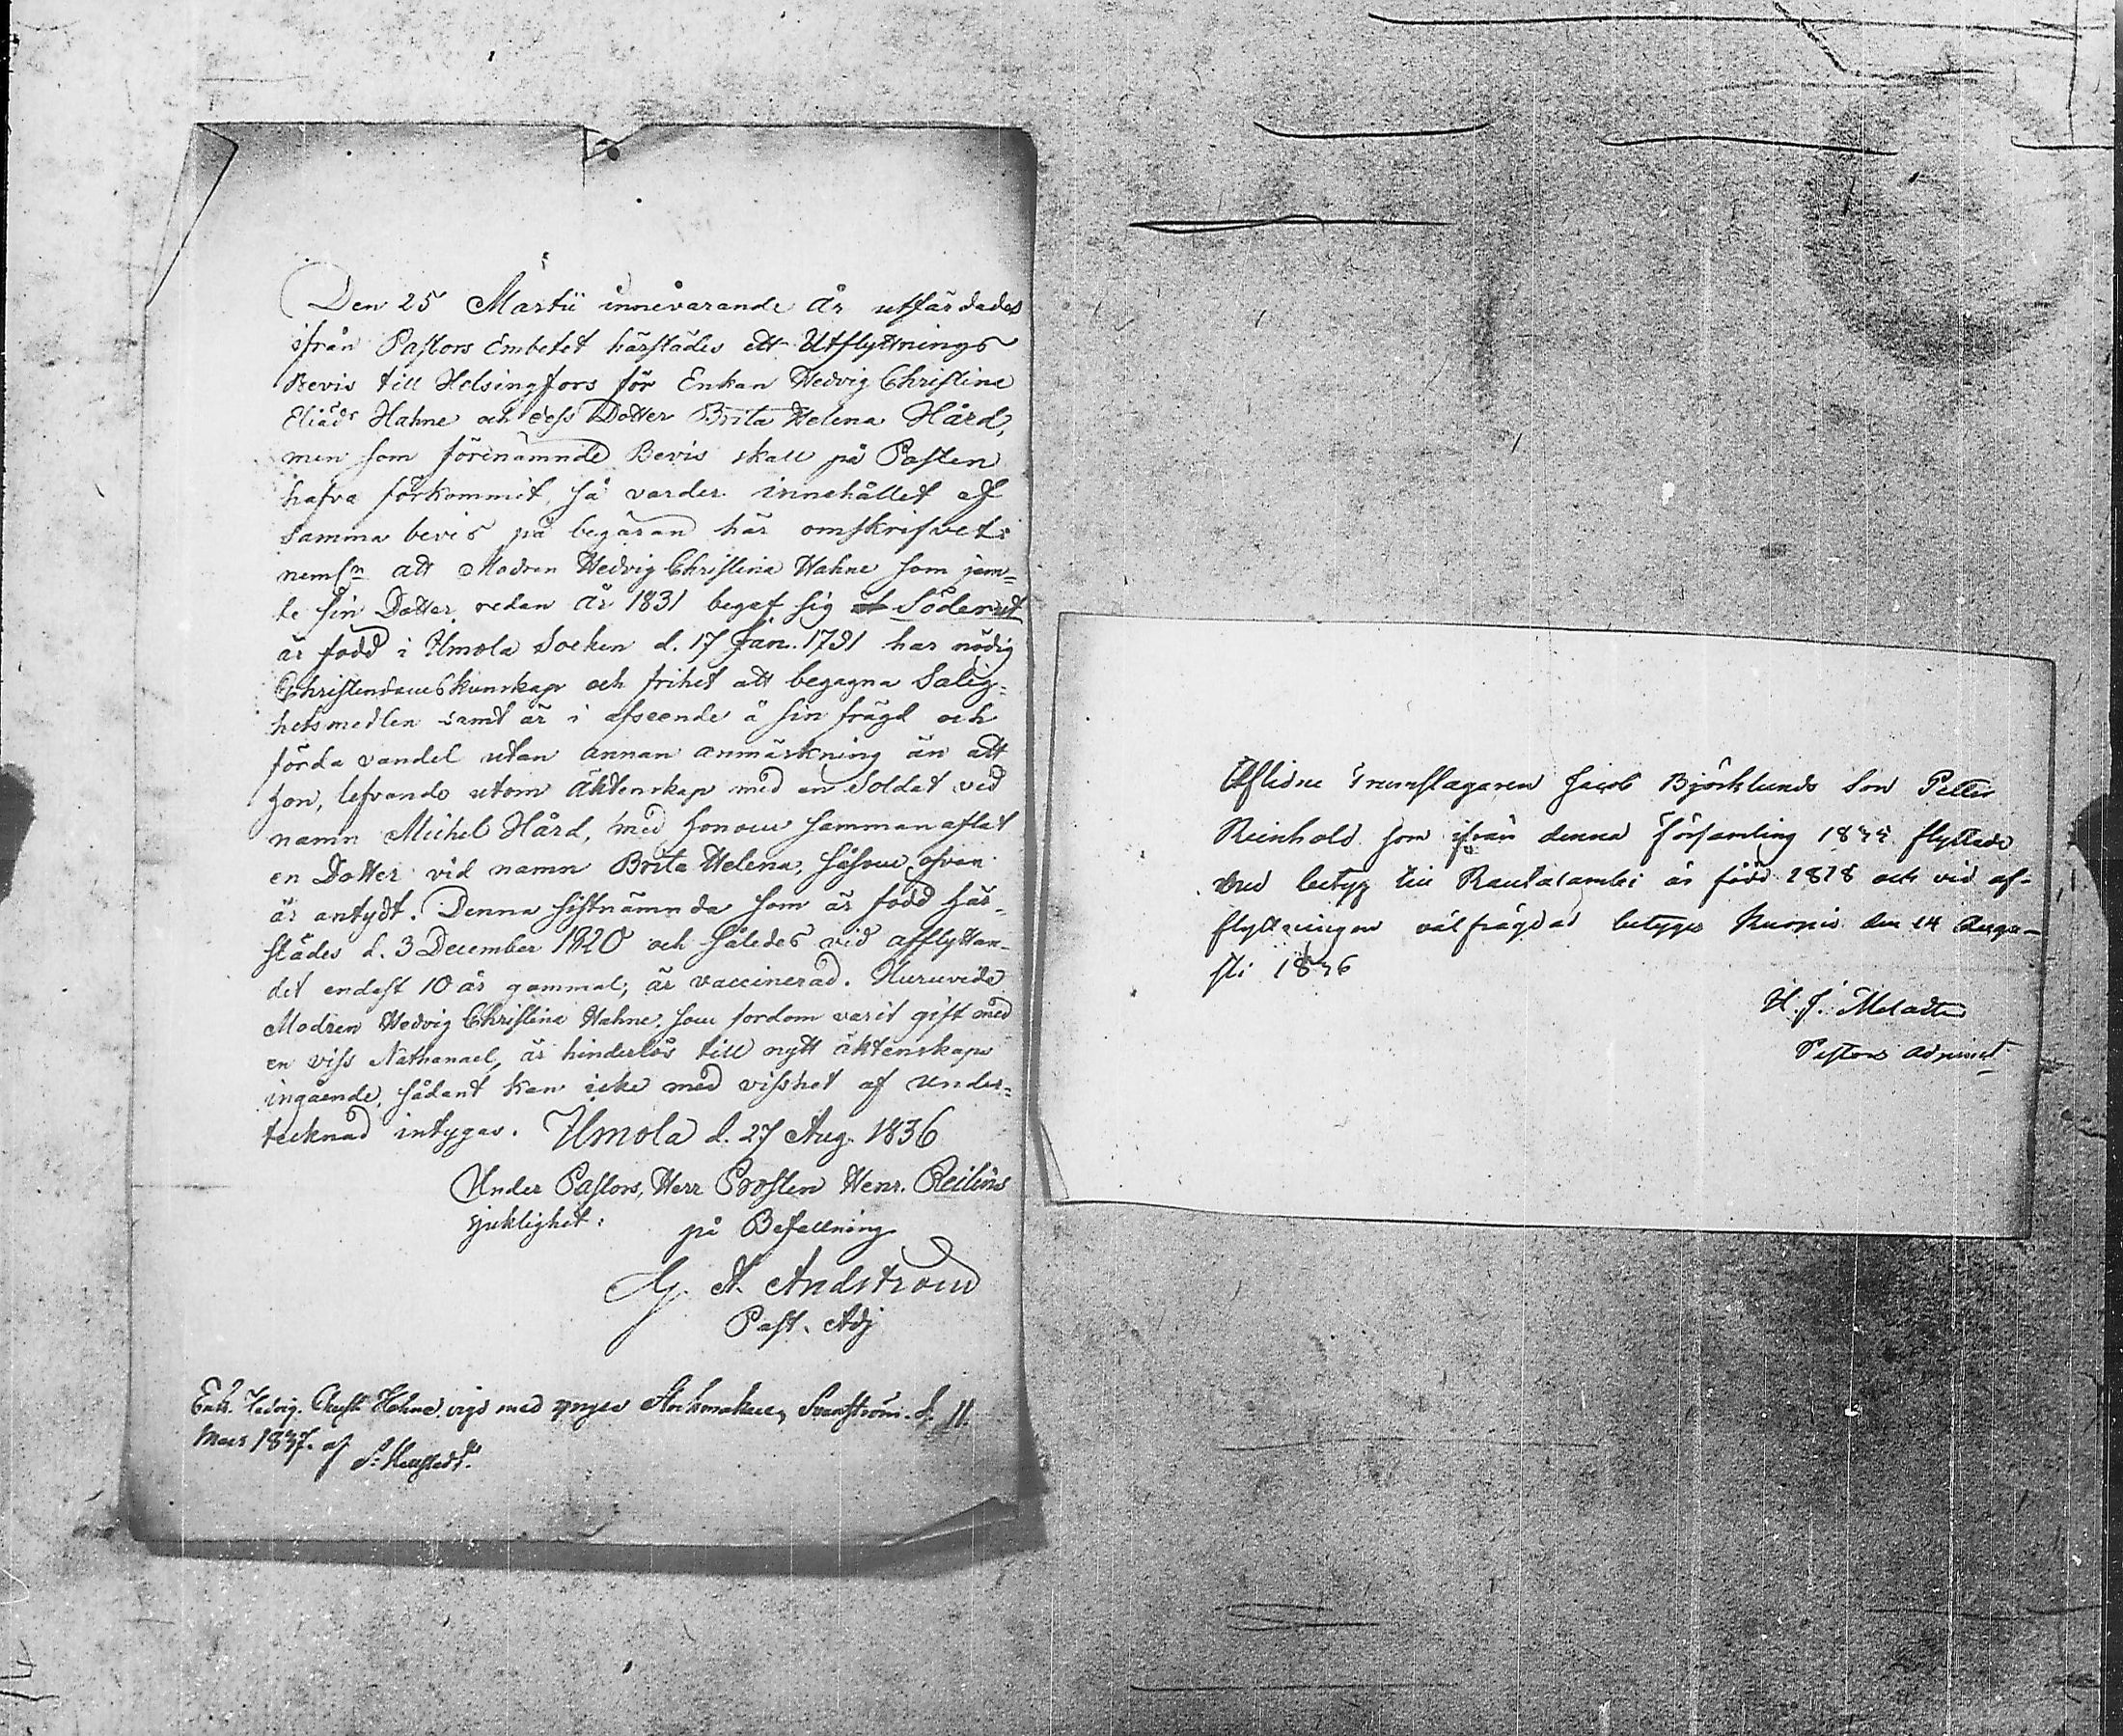 Den 25 Martii innevarande år utfärdades
ifrån Pastors Embetet härstädes ett Utflyttnings
Bevis till Helsingfors för Enkan Hedvig Christina
Eliæds Hahne och dess Dotter Brita Helena Hård,
men som förenämnde Bevis skall på Posten
hafva förkommit, så varder innehållet af
samma bevis på begäran här omskrifvet:
neml:n att Modren Hedvig Christina Hahne som jem-
te sin Dotter redan år 1831 begaf sig Söderut
är född i Ilmola Socken d. 17 Jan. 1791 har nödig
Christendomskunskap och frihet att begagna Salig-
hetsmedlen samt är i afseende å sin frägd och
förda vandel utan annan anmärkning än att
hon, lefvande utom äktenskap med en Soldat ved
namn Michel Hård, med honom sammanaflat
en Dotter vid namn Brita Helena, såsom ofvan
är antydt. Denna sistnämnda som är född här-
städes d. 3 December 1820 och således vid afflyttan-
det endast 10 år gammal, är vaccinerad. Huruvida
Modren Hedvig Christina Hahne, som fordom varit gift med
en viss Nathanael, är hinderlös till nytt äktenskaps
ingående, sådant kan icke med visshet af under-
tecknad intygas. Ilmola d. 27 Aug. 1836
Under Pastors, Herr Prosten Henr. Reilins
sjuklighet:
på Befallning
G. A. Andström
Past. Adj
Enk. Hedvig Christ. Hahne vigd med yngre Stockmakaren Svanström d. 11
Mars 1837. af
Aflidne Trumslagaren Jacob Björklunds Son Petter
Reinhold som ifrån denna församling 1835 flyttade
med betyg till Rautalambi är född 1818 och vid af-
flyttningen välfrägdad betygar Kuopio den 14 Augu-
sti 1836
H. J.
Pastors adjunct